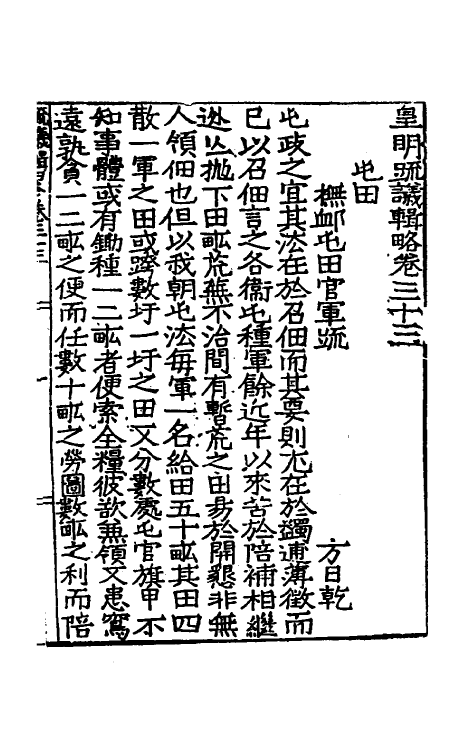 皇明疏議輯略卷三十三
屯田
撫䘏屯田官軍疏 方日乾
屯政之宜其法在於召佃而其要則尤在於蠲逋薄徵而
已以召佃言之各衞屯種軍餘近年以來苦於陪補相繼
逃亾抛下田畆荒蕪不治間有暫荒之田易於開懇非無
人領佃也但以我朝屯法每軍一名給田五十畆其田四
散一軍之田或跨數圩一圩之田又分數處屯官旗甲不
知事體或有鋤種一二畆者便索全糧彼欲無領又患寫
遠孰貪一二畆之便而任數十畆之勞圖數畆之利而陪